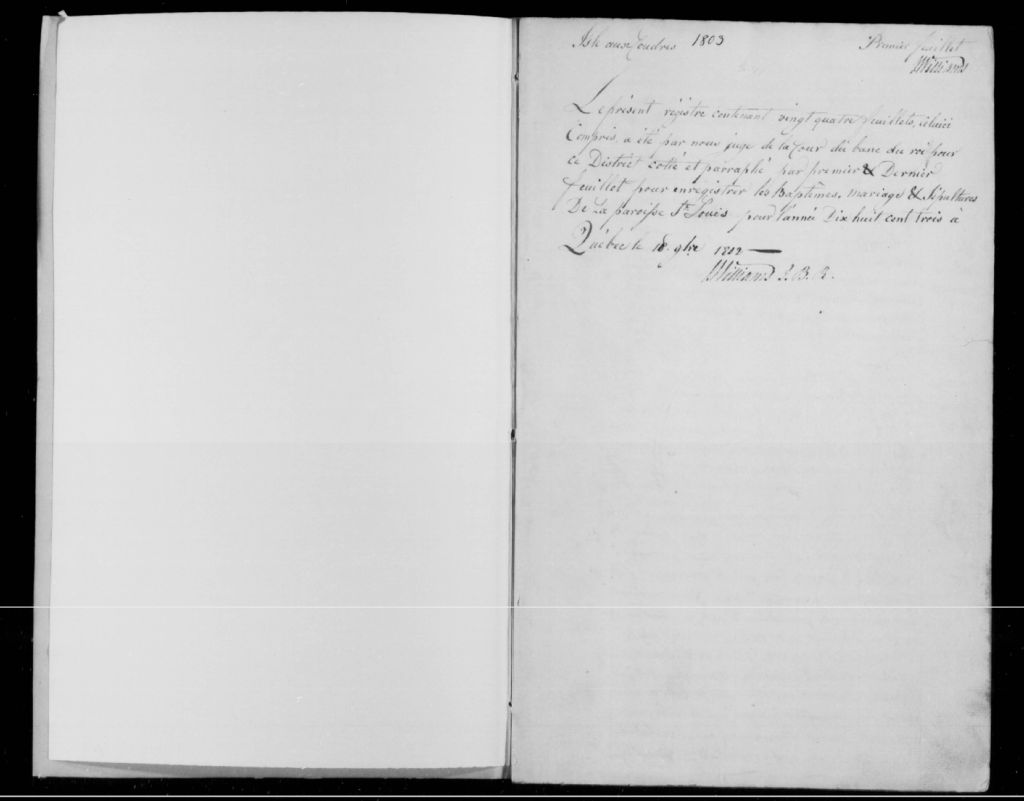 Isle aux Coudres 1803
Premier feuillet
Williams
Le présent régistre contenant vingt quatre feuillets, celuici
Compris, a été par nous juge de la Cour du banc du roi pour
ce District cotté et parraphé par premier & Dernier
feuillet pour enregistrer les Baptêmes, mariage & sépultures
De la paroisse St. Louis pour l'année Dix huit cent trois à
Québec le 18. 9bre 1802
Williams J. B. R.